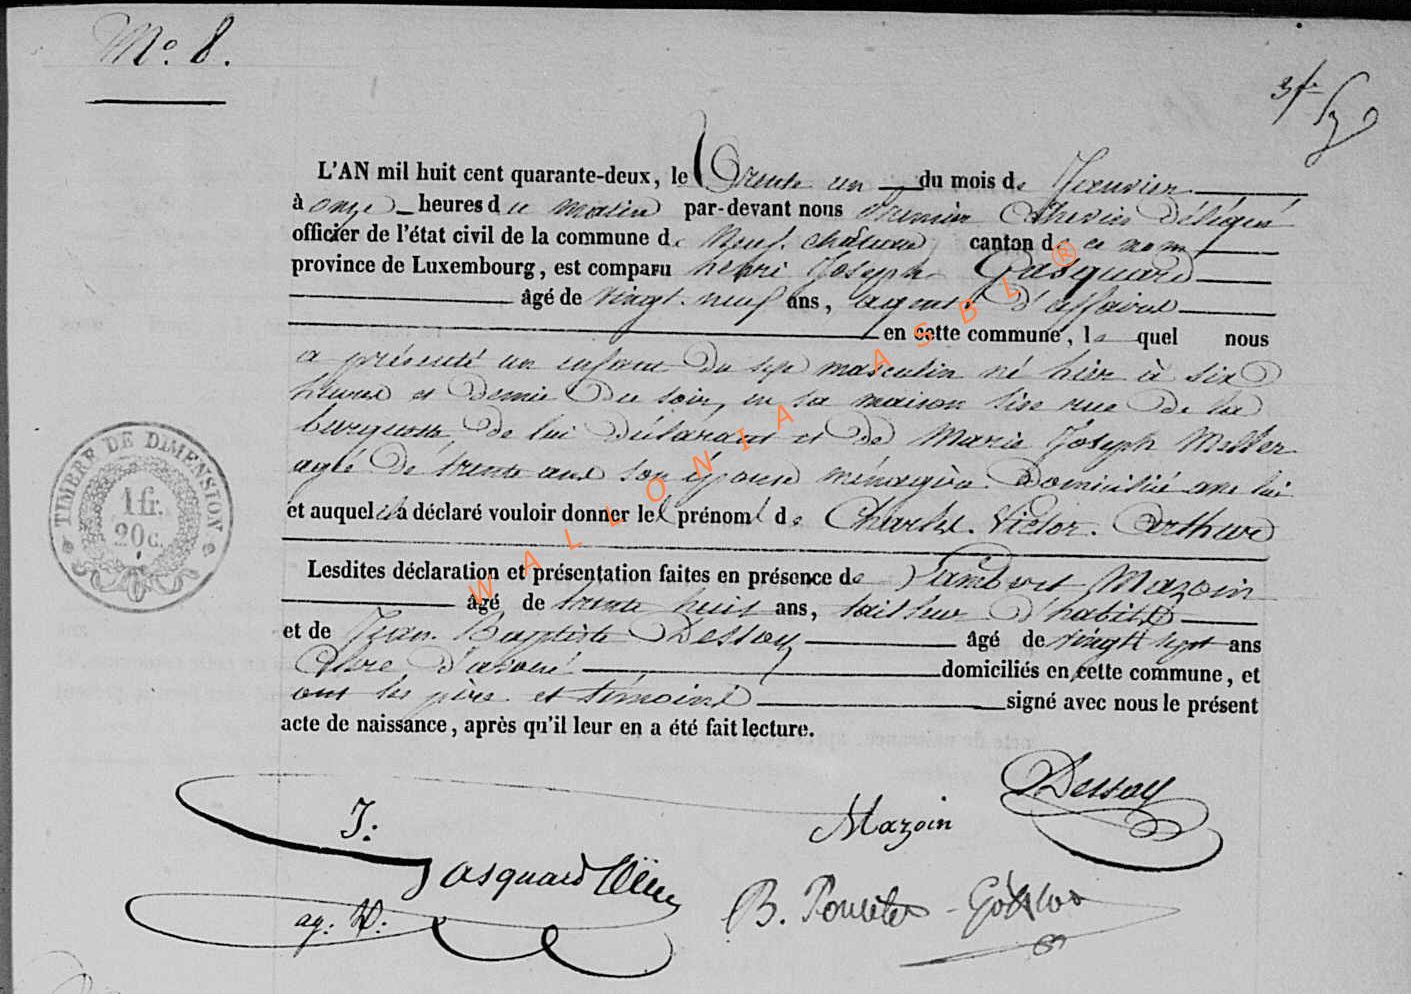 No. 8.
L'AN mil huit cent quarante-deux, le Trente un du mois de Janvier
à onze heures du matin par-devant nous Premier Echevin Délégué
officier de l'état civil de la commune de Neufchâteau canton de ce nom
province de Luxembourg, est comparu henri Joseph Jasquard
âgé de vingt-neuf ans, agent d'affaires
en cette commune, lequel nous
a présenté un enfant du sexe masculin né hier à six
heures et demie du soir, en sa maison sise rue de la
de lui déclarant et de Marie Joseph
agé de trente ans son épouse ménagère domicilié avec lui
et auquel il a déclaré vouloir donner les prénoms de Charles Victor Arthur
Lesdites déclaration et présentation faites en présence de Lambert Mazoin
âgé de trente huit ans, tailleur d'habits
et de Jean Baptiste Dessoy âgé de vingt sept ans
Clerc d'avoué domiciliés en cette commune, et
ont les père et témoins signé avec nous le présent
acte de naissance, après qu'il leur en a été fait lecture.
TIMBRE DE DIMENSION
1 fr.
20 c.
WALLONIA ASBL ®
Dessoy
J:
Mazoin
Jasquard
ag: D:
B.